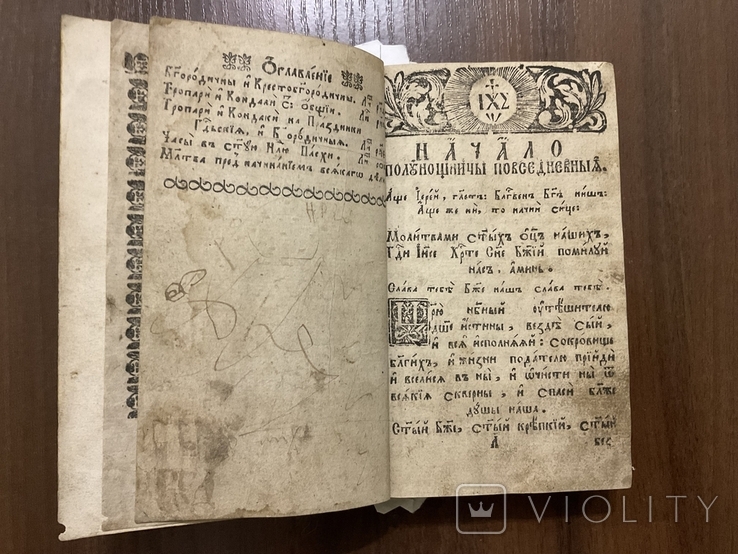 Ѻглавленїе
Бг҃ородичны и҆ Крестобг҃ородичны,
Тропари и҆ Кондаки ѻ҆бщїи,
Тропари и҆ Кондаки на Праздники
Гдⷭ҇скїѧ, и҆ Бг҃ородичныѧ.
Часы въ ст҃ꙋю Нлⷧ҇ю Пасхи,
Мл҃тва пред начинанїемъ всѧкагѡ
ІХС
НАЧАЛО
полꙋнощницы повседневныѧ.
Аще Іерей, гл҃етъ: Блгⷭ҇венъ Бг҃ъ нашъ:
Аще же ни, то начни сице:
Молитвами ст҃ыхъ ѻ҆ц҃ъ нашихъ,
Гдⷭ҇и Іис҃е Хрⷭ҇те Сн҃е Бж҃їй помилꙋй
насъ. аминь.
Слава тебѣ Бж҃е нашъ слава тебѣ.
Цр҃ю нбⷭ҇ный ѹ҆тѣшителю
дш҃е и҆стины, вездѣ сый,
и҆ всѧ и҆сполнѧѧй: сокровище
благихъ, и҆ жизни подателю прїйди
и҆ вселисѧ въ ны, и҆ ѡ҆чисти ны ѿ
всѧкїѧ скверны, и҆ спаси бл҃же
дꙋшы наша.
Ст҃ый Бж҃е, ст҃ый крѣпкїй, ст҃ый
А бес
VIOLITY